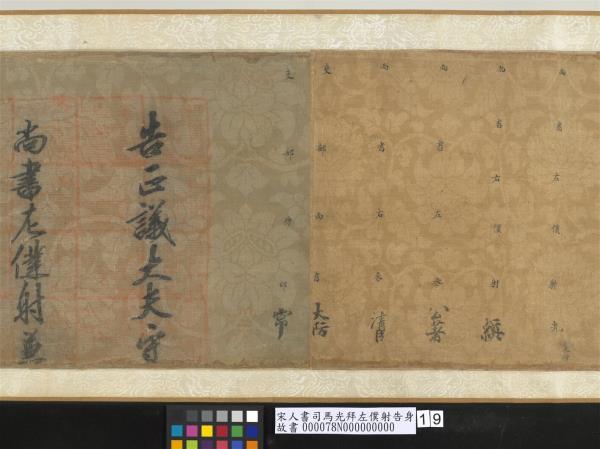 尚書左僕射光
尚書右僕射縝
尚書左丞公著
尚書右丞清臣
吏部尚書大防
吏部侍郎常
告正議大夫守
尚書左僕射兼
宋人書司馬光拜左僕射告身
故書 000078N000000000
19